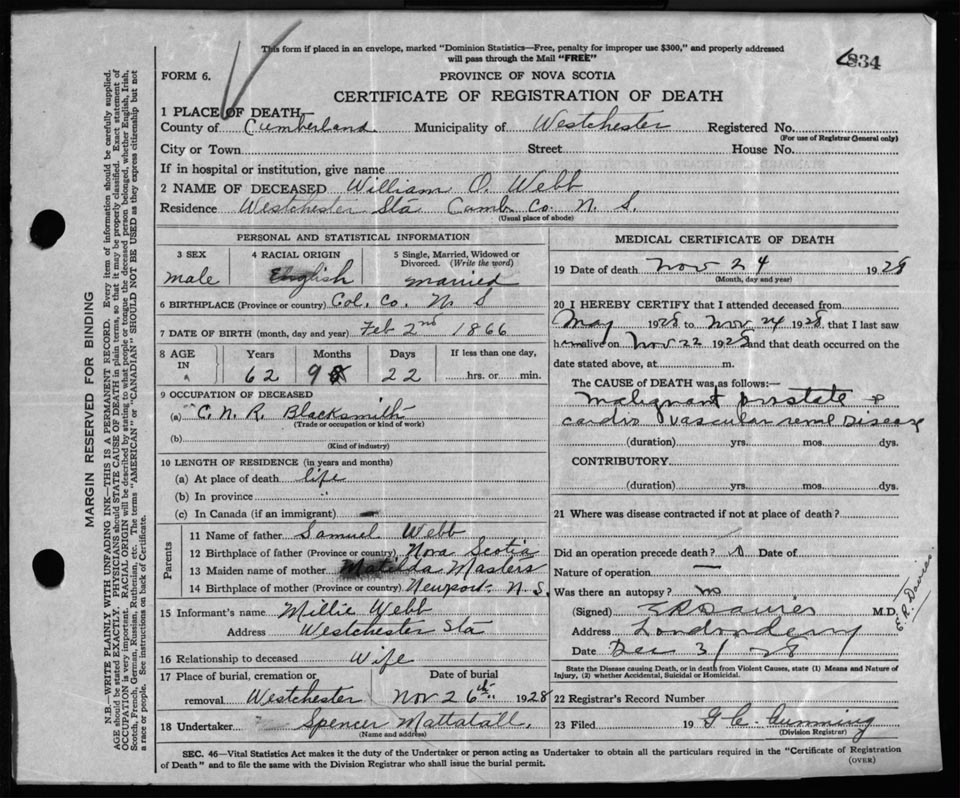 This form if placed in an envelope, marked "Dominion Statistics—Free, penalty for improper use $300," and properly addressed
will pass through the Mail "FREE"
834
FORM 6.
PROVINCE OF NOVA SCOTIA
CERTIFICATE OF REGISTRATION OF DEATH
1 PLACE OF DEATH
County of Cumberland Municipality of Westchester Registered No.
(For use of Registrar General only)
City or Town Street House No.
If in hospital or institution, give name
2 NAME OF DECEASED William O. Webb
Residence Westchester Sta Cumb. Co. N. S.
(Usual place of abode)
PERSONAL AND STATISTICAL INFORMATION
3 SEX 4 RACIAL ORIGIN 5 Single, Married, Widowed or
Divorced. (Write the word)
male English married
6 BIRTHPLACE (Province or country) Col. Co. N. S
7 DATE OF BIRTH (month, day and year) Feb 2nd 1866
8 AGE Years Months Days If less than one day,
IN
62 9 22 hrs. or min.
9 OCCUPATION OF DECEASED
(a) C. N. R. Blacksmith
(Trade or occupation or kind of work)
(b)
(Kind of industry)
10 LENGTH OF RESIDENCE (in years and months)
(a) At place of death life
(b) In province "
(c) In Canada (if an immigrant) —
Parents
11 Name of father Samuel Webb
12 Birthplace of father (Province or country) Nova Scotia
13 Maiden name of mother Matilda Masters
14 Birthplace of mother (Province or country) Newport. N. S.
15 Informant's name Millie Webb
Address Westchester Sta
16 Relationship to deceased Wife
17 Place of burial, cremation or Date of burial
removal Westchester Nov 26th 1928
18 Undertaker Spencer Mattatall,
(Name and address)
MEDICAL CERTIFICATE OF DEATH
19 Date of death Nov 24 1928
(Month, day and year)
20 I HEREBY CERTIFY that I attended deceased from
May 1928 to Nov 24 1928, that I last saw
him alive on Nov 22 1928 and that death occurred on the
date stated above, at m.
The CAUSE OF DEATH was as follows:—
Malignant prostate &
cardio vascular renal Disease
(duration) yrs. mos. dys.
CONTRIBUTORY
(duration) yrs. mos. dys.
21 Where was disease contracted if not at place of death?
Did an operation precede death? Date of
Nature of operation —
Was there an autopsy? no
(Signed) E R Davies M.D.
E. R. Davies
Address Londonderry
Date Dec 31 28
State the Disease causing Death, or in death from Violent Causes, state (1) Means and Nature of
Injury, (2) whether Accidental, Suicidal or Homicidal.
22 Registrar's Record Number
23 Filed 19 G. C. Cumming
(Division Registrar)
SEC. 46—Vital Statistics Act makes it the duty of the Undertaker or person acting as Undertaker to obtain all the particulars required in the "Certificate of Registration
of Death" and to file the same with the Division Registrar who shall issue the burial permit.
(OVER)
MARGIN RESERVED FOR BINDING
N.B.—WRITE PLAINLY WITH UNFADING INK—THIS IS A PERMANENT RECORD. Every item of information should be carefully supplied.
AGE should be stated EXACTLY. PHYSICIANS should STATE CAUSE OF DEATH in plain terms, so that it may be properly classified. Exact statement of
OCCUPATION is very important. RACIAL ORIGIN will be described by stating to what people or tongue the deceased person belonged, whether English, Irish,
Scotch, French, German, Russian, Ruthenian, etc. The terms "AMERICAN" or "CANADIAN" SHOULD NOT BE USED as they express citizenship but not
a race or people. See instructions on back of Certificate.